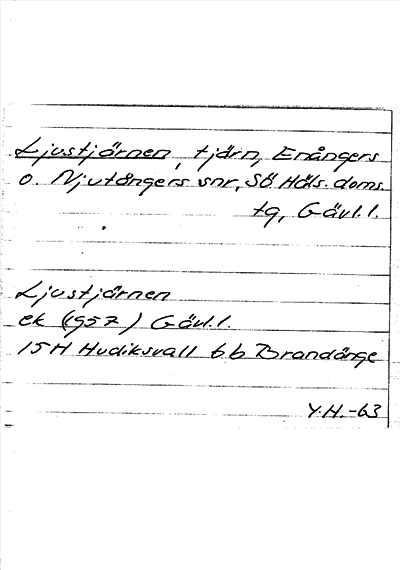 Ljustjärnen, tjärn, Enångers
o. Njutångers snr, Sö Häls. doms.
tg, Gävl. l.
Ljustjärnen
ek (1957) Gävl. l.
15H Hudiksvall 6b Brandänge
Y.H.-63